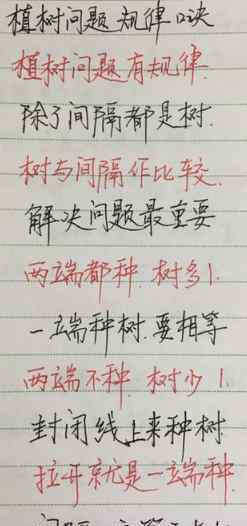 植树问题规律口诀
植树问题有规律.
除了间隔都是树.
树与间隔作比较.
解决问题最重要
两端都种.树多1.
一端种树.要相等
两端不种.树少1.
封闭线上来种树
拉开就是一端种.